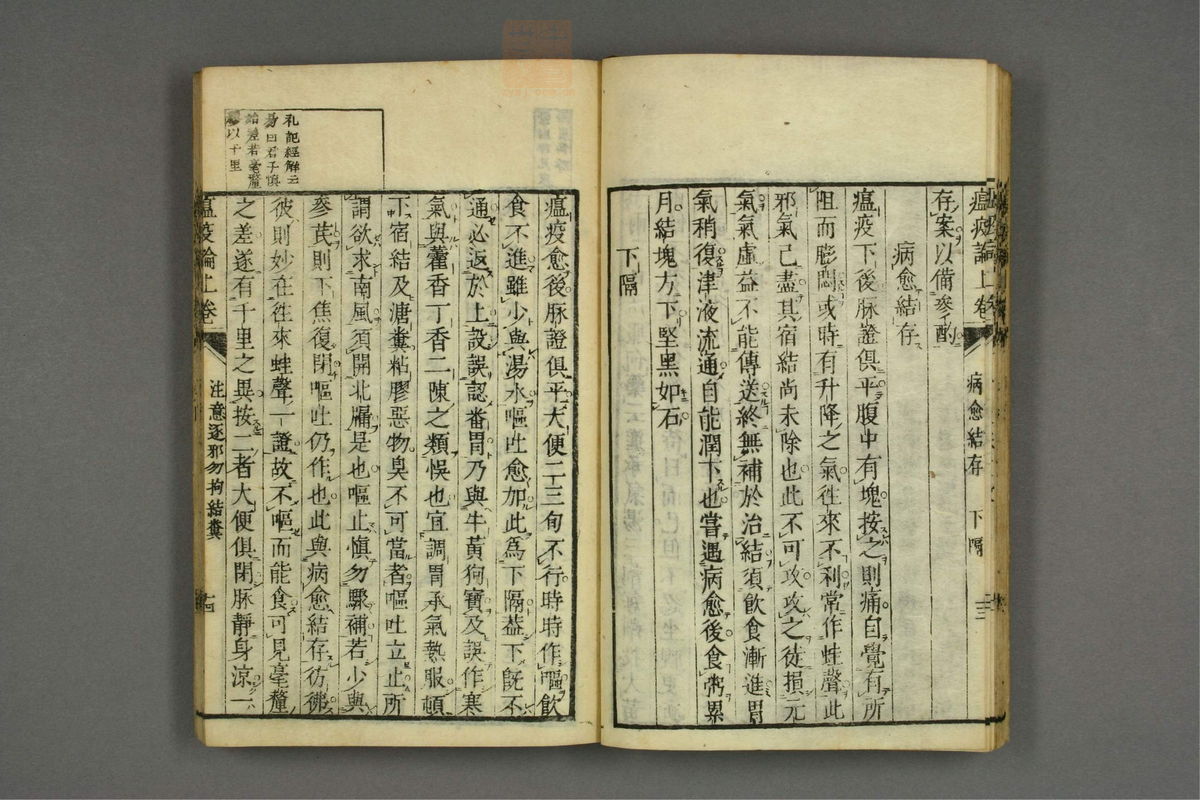 瘟疫論上卷
病愈結存
下隔
十三
存案以備參酌
病愈結存
瘟疫下後脉證俱平腹中有塊按之則痛自覺有所
阻而膨悶或時有升降之氣徃來不利常作蛙聲此
邪氣已盡其宿結尚未除也此不可攻攻之徒損元
氣氣虛益不能傳送終無補於治結須飲食漸進胃
氣稍復津液流通自能潤下也嘗遇病愈後食粥累
月結塊方下堅黑如石
下隔
札記經解云
易曰君子慎
始差若毫釐
繆以千里
瘟疫愈後脉證俱平大便二三旬不行時時作嘔飲
食不進雖少與湯水嘔吐愈加此為下隔葢下旣不
通必返於上設誤認番胃乃與牛黃狗寶及誤作寒
氣與藿香丁香二陳之類悞也宜調胃承氣熱服頓
下宿結及溏糞粘膠惡物臭不可當者嘔吐立止所
謂欲求南風須開北牖是也嘔止愼勿驟補若少與
參芪則下焦復閉嘔吐仍作也此與病愈結存彷彿
彼則妙在徃來蛙聲一證故不嘔而能食可見毫釐
之差遂有千里之異按二者大便俱閉脉靜身凉一
瘟疫論上卷
注意逐邪勿拘結糞
十四